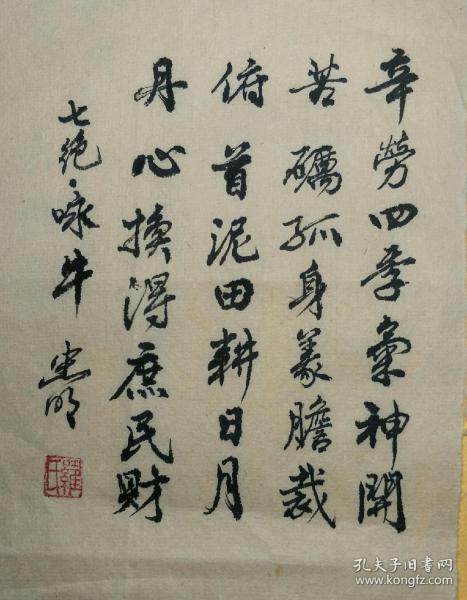 辛勞四季氣神開
苦礪孤身義膽裁
俯首泥田耕日月
丹心換得庶民財
七绝·咏牛
忠明
孔夫子旧书网
www.kongfz.com